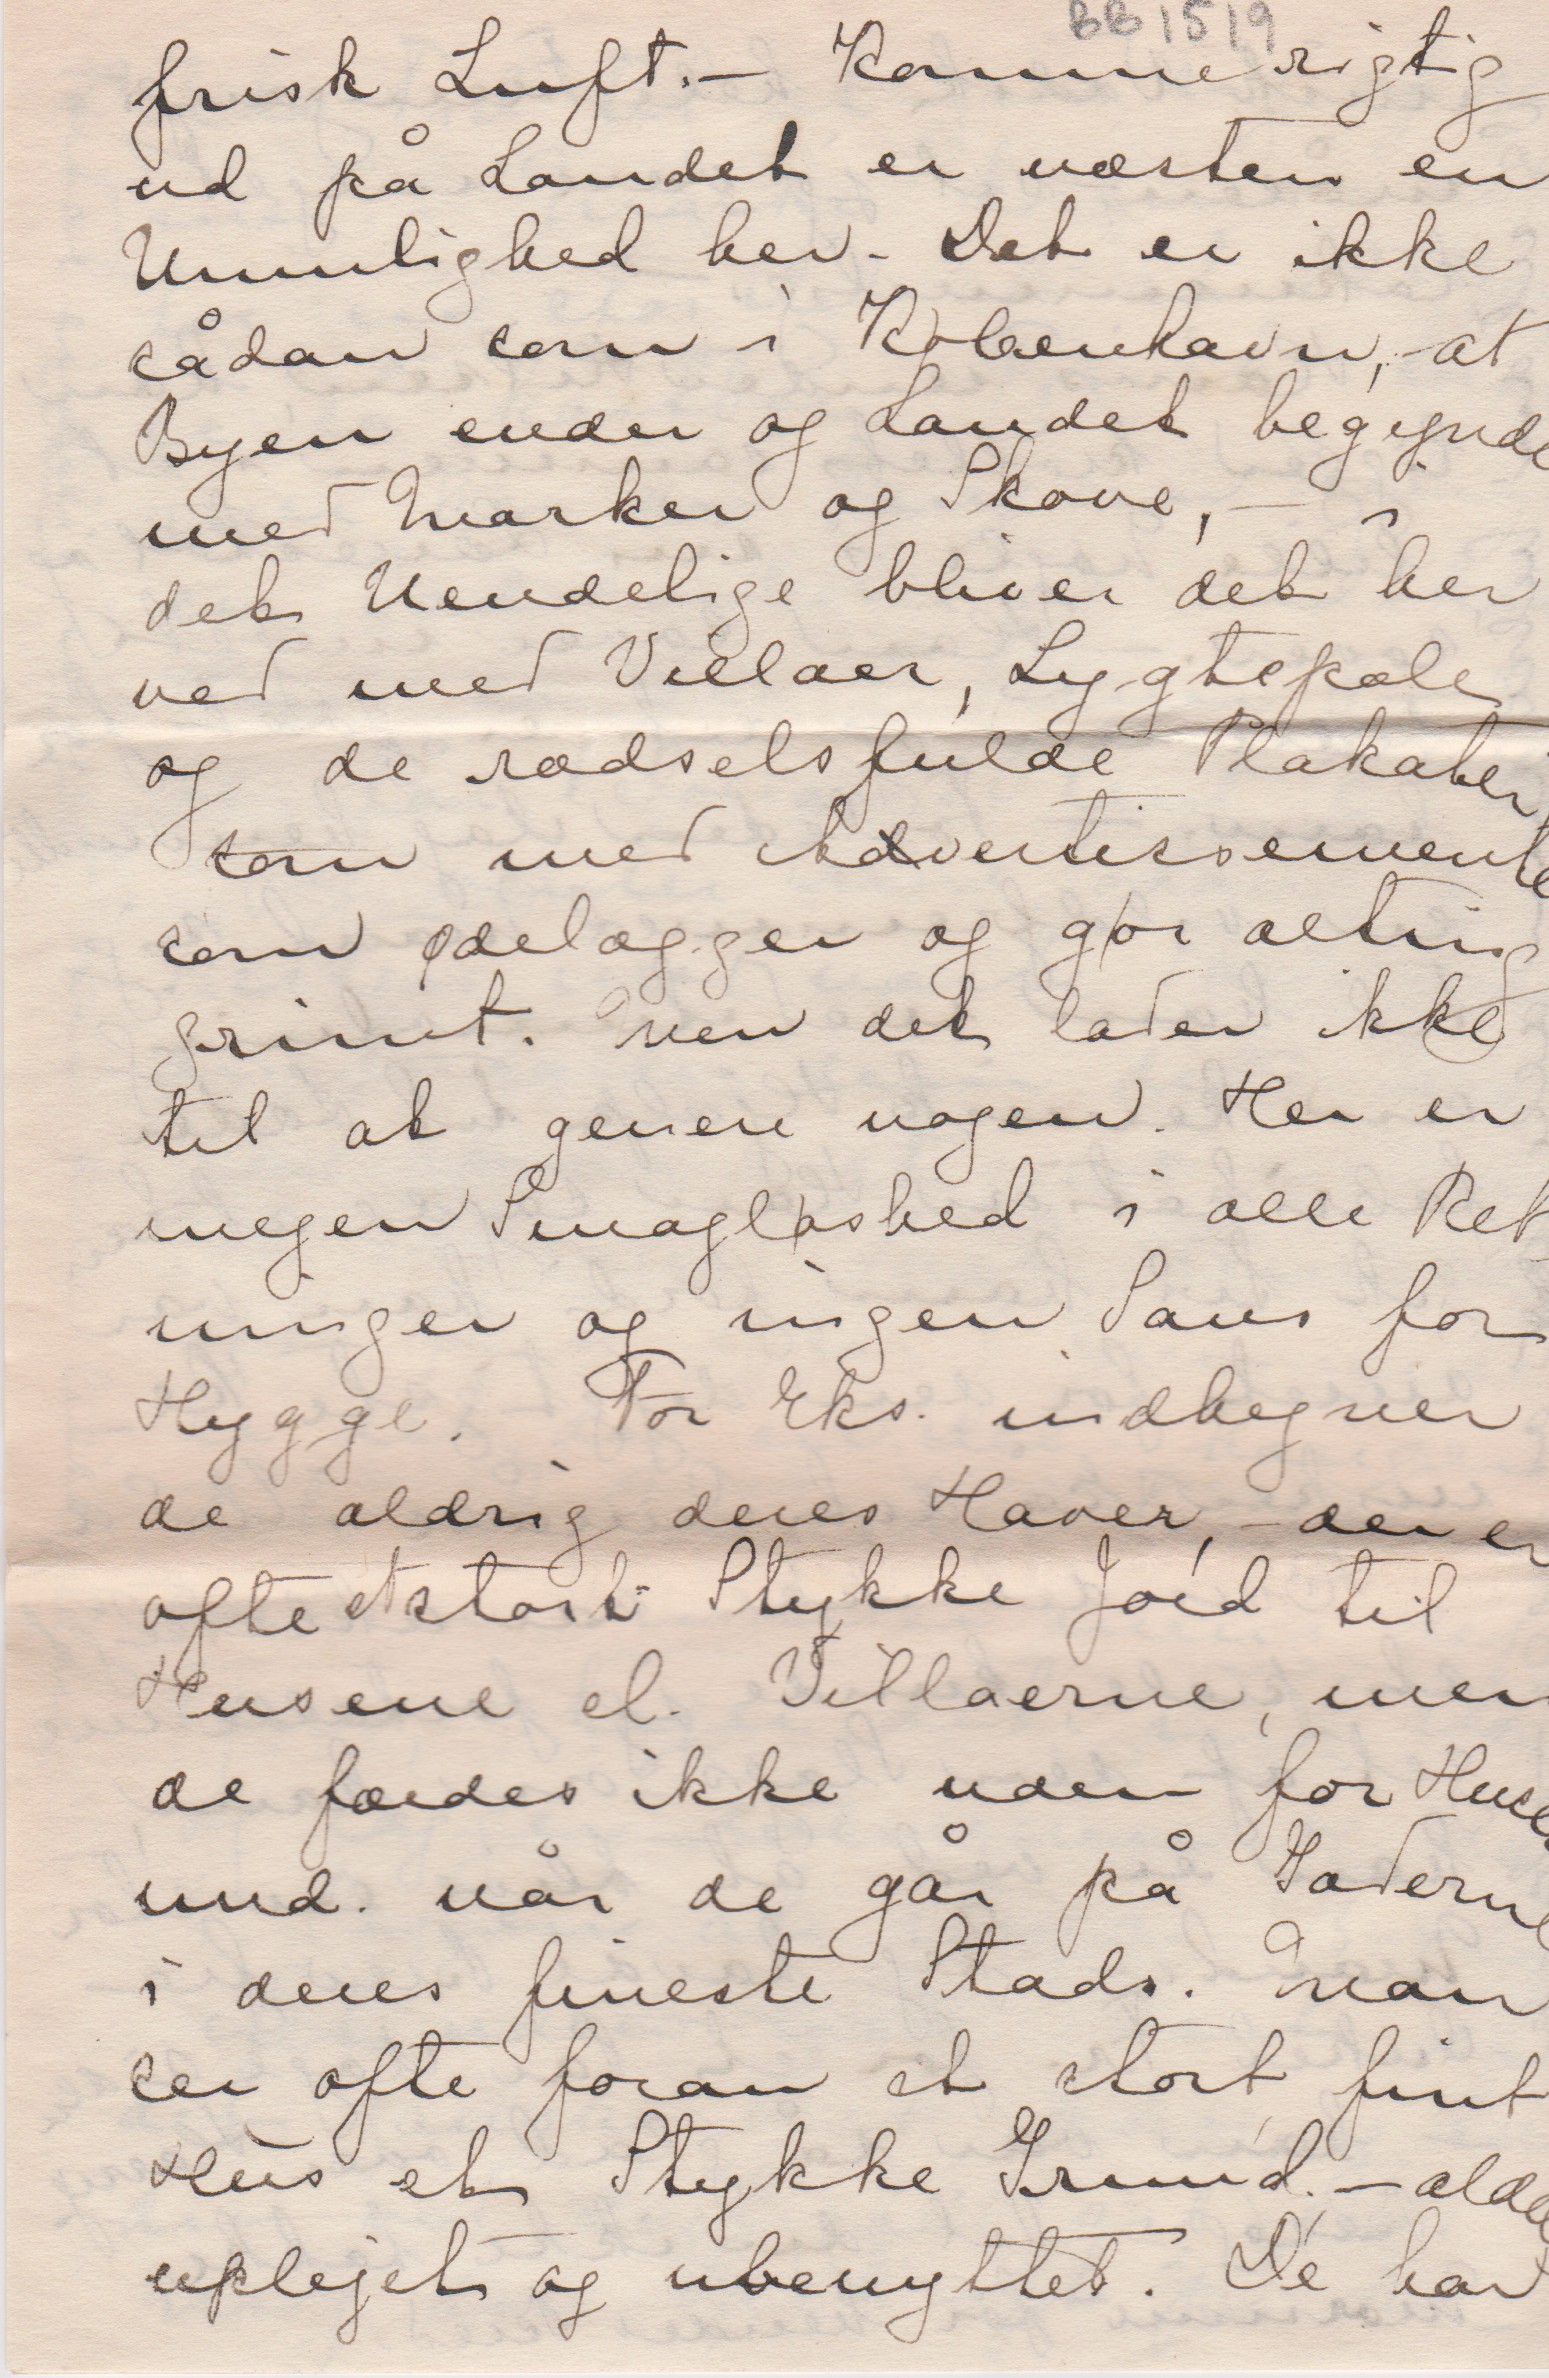 BB 1519
frisk Luft. - Komme rigtig
ud på Landet er næsten en
Umulighed her. Det er ikke
sådan som i København, - at
Byen ender og Landet begynde
med Marker og Skove, - i
det Uendelige bliver det her
ved med Villaer, Lygtepæle
og de rædselsfulde Plakater
som med Advertissemente
som ødelægger og gør alting
grimt. Men det lader ikke
til at genere nogen. Her er
megen Smagløshed i alle Ret
ninger og ingen Sans for
Hygge. For Eks. indhegner
de aldrig deres Haver, - der er
ofte et stort Stykke Jord til
Husene el. Villaerne, men
de færdes ikke uden for Huse
und. når de går på Gaderne
i deres fineste Stads. Man
ser ofte foran et stort, fint
Hus et Stykke Grund. -
uplejet og ubenyttet. De har